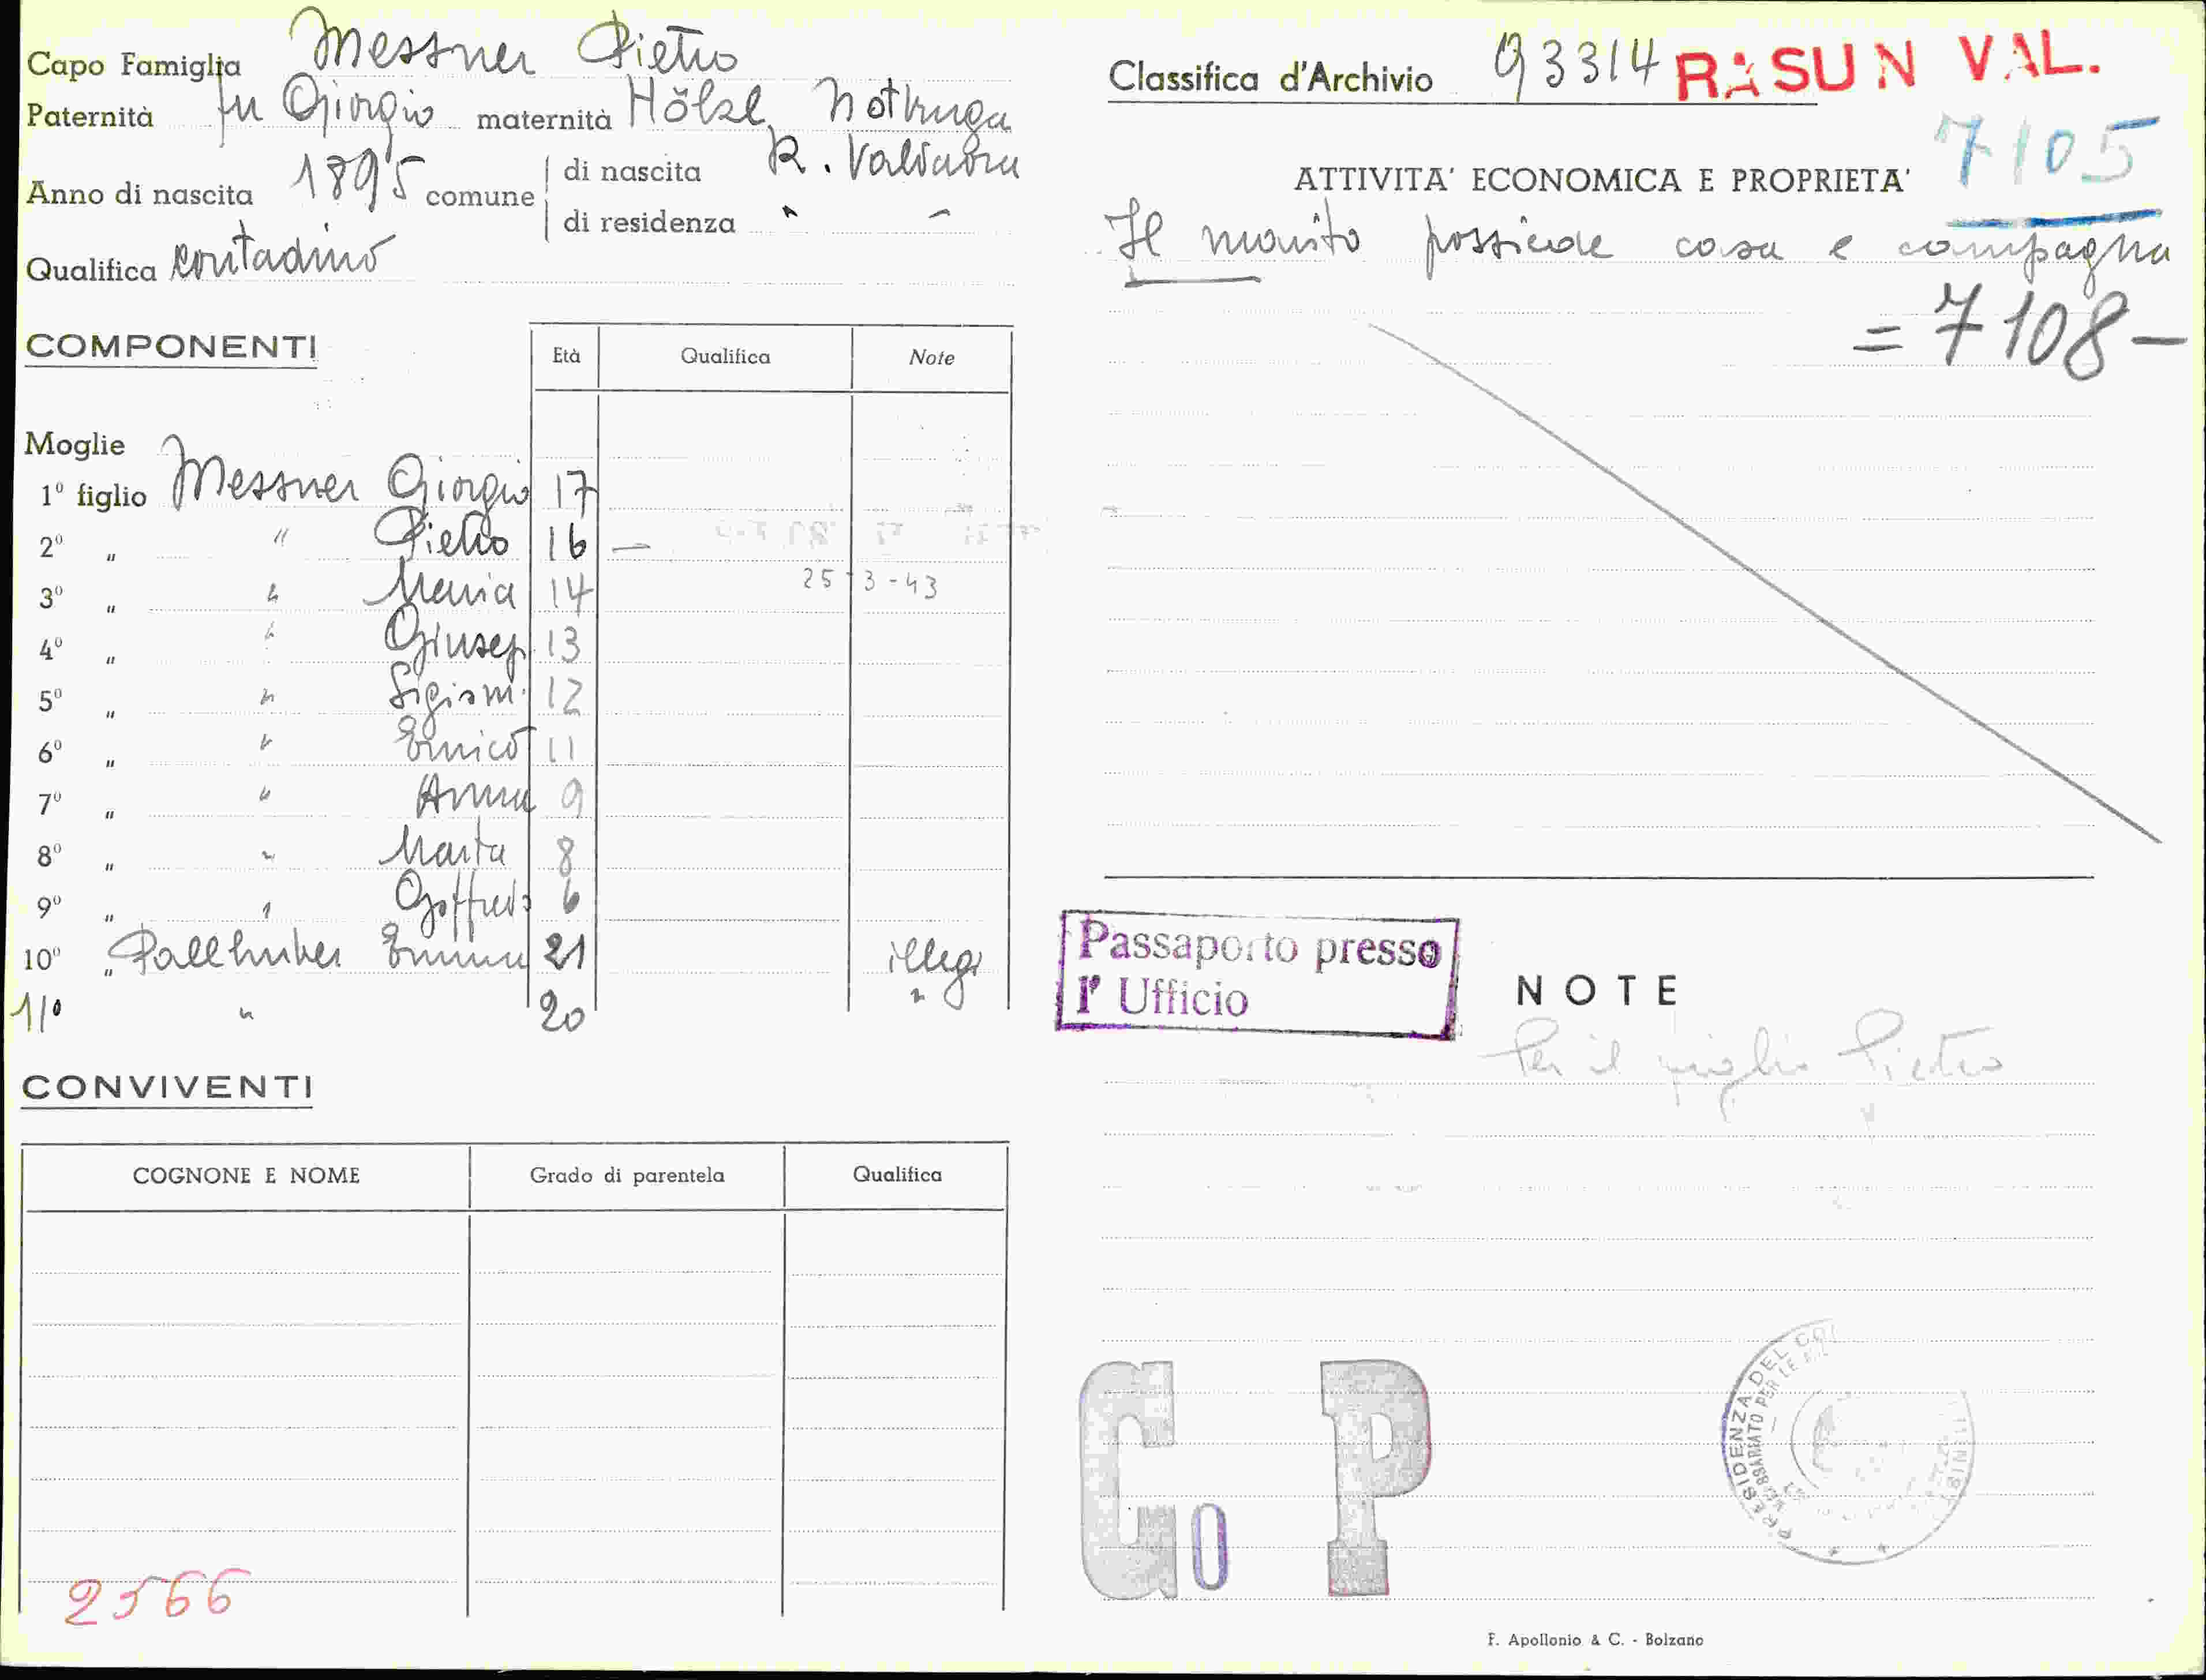 Capo Famiglia Messner Pietro
Paternità fu Giorgio maternità Hölzl Notburga
Anno di nascita 1895 comune di nascita R. Valdaora
di residenza " "
Qualifica contadino
COMPONENTI
Età Qualifica Note
Moglie
1° figlio Messner Giorgio 17
2° " " Pietro 16 —
3° " " Maria 14 25-3-43
4° " " Giusep. 13
5° " " Sigism. 12
6° " " Enrico 11
7° " " Anna 9
8° " " Marta 8
9° " " Goffredo 6
10° " Pallhuber Emma 21 illeg.
11° " 20 "
CONVIVENTI
COGNONE E NOME Grado di parentela Qualifica
2566
Classifica d'Archivio 93314 RASUN VAL.
7105
ATTIVITA' ECONOMICA E PROPRIETA'
Il marito possiede casa e campagna
= 7108 —
Passaporto presso
l' Ufficio
NOTE
Per il figlio Pietro
Go P
PRESIDENZA DEL
F. Apollonio & C. - Bolzano